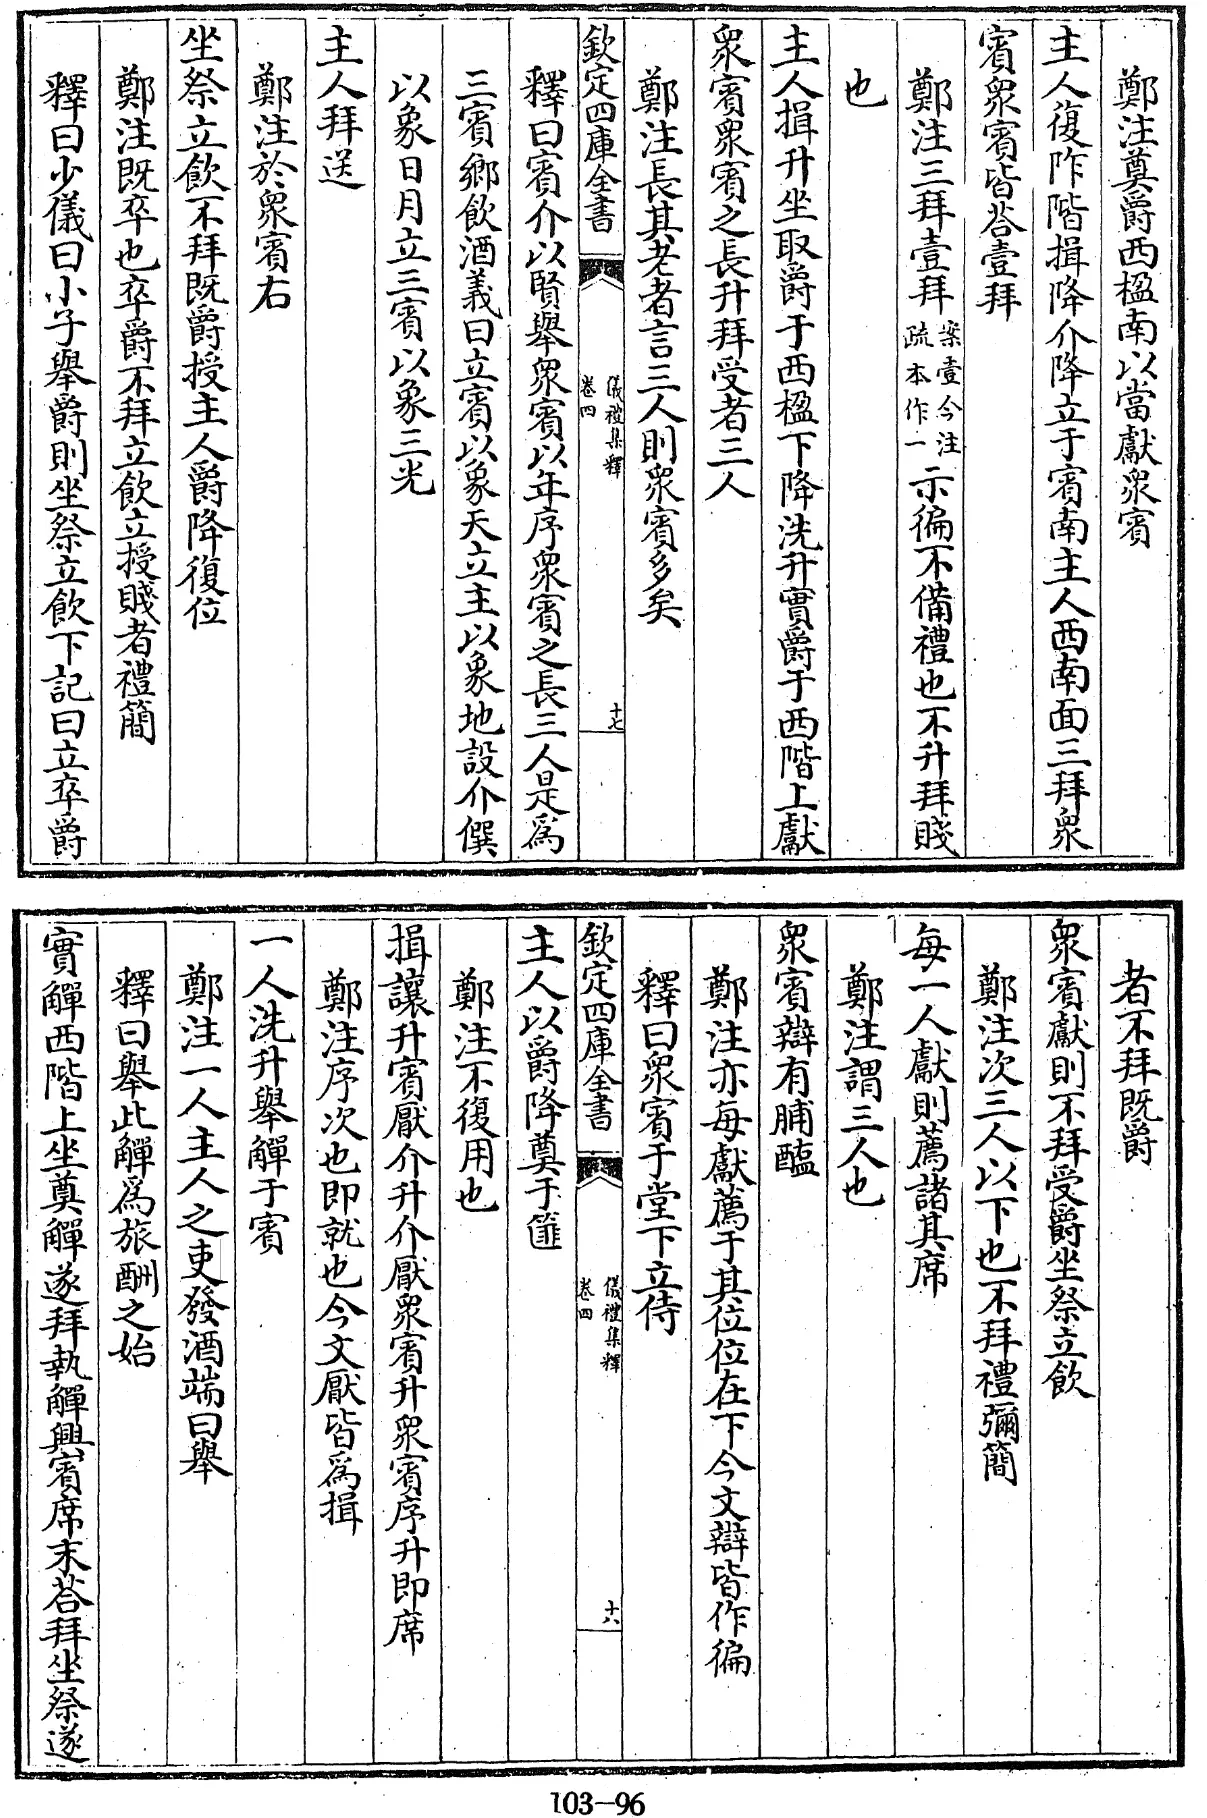 鄭注奠爵西楹南以當獻衆賓
主人復阼階揖降介降立于賓南主人西南面三拜衆
賓衆賓皆荅壹拜
鄭注三拜壹拜案壹今注疏本作一示徧不備禮也不升拜賤
也
主人揖升坐取爵于西楹下降洗升實爵于西階上獻
衆賓衆賓之長升拜受者三人
鄭注長其老者言三人則衆賓多矣
欽定四庫全書 儀禮集釋 卷四 十七
釋曰賓介以賢舉衆賓以年序衆賓之長三人是爲
三賓鄉飲酒義曰立賓以象天立主以象地設介僎
以象日月立三賓以象三光
主人拜送
鄭注於衆賓右
坐祭立飲不拜既爵授主人爵降復位
鄭注既卒也卒爵不拜立飲立授賤者禮簡
釋曰少儀曰小子舉爵則坐祭立飲下記曰立卒爵
者不拜既爵
衆賓獻則不拜受爵坐祭立飲
鄭注次三人以下也不拜禮彌簡
每一人獻則薦諸其席
鄭注謂三人也
衆賓辯有脯醢
鄭注亦每獻薦于其位位在下今文辯皆作徧
釋曰衆賓于堂下立侍
欽定四庫全書 儀禮集釋 卷四 十八
主人以爵降奠于篚
鄭注不復用也
揖讓升賓厭介升介厭衆賓升衆賓序升即席
鄭注序次也即就也今文厭皆爲揖
一人洗升舉觶于賓
鄭注一人主人之吏發酒端曰舉
釋曰舉此觶爲旅酬之始
實觶西階上坐奠觶遂拜執觶興賓席末荅拜坐祭遂
103-96